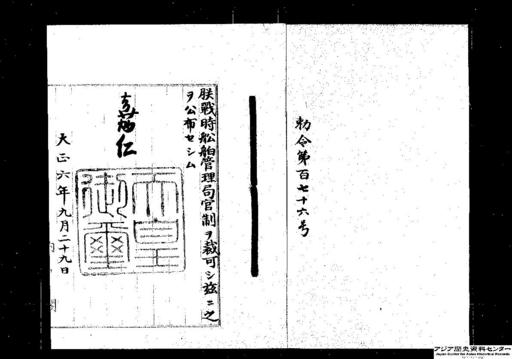 勅令第百七十六号
朕戦時船舶管理局官制ヲ裁可シ茲ニ之
ヲ公布セシム
嘉仁
天皇
御璽
大正六年九月二十九日
アジア歴史資料センター
Japan Center for Asian Historical Records